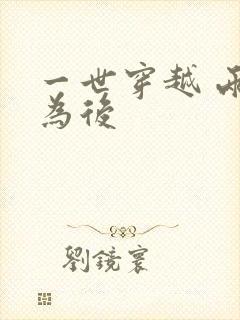 一世穿越 兩
為後
劉鏡寰